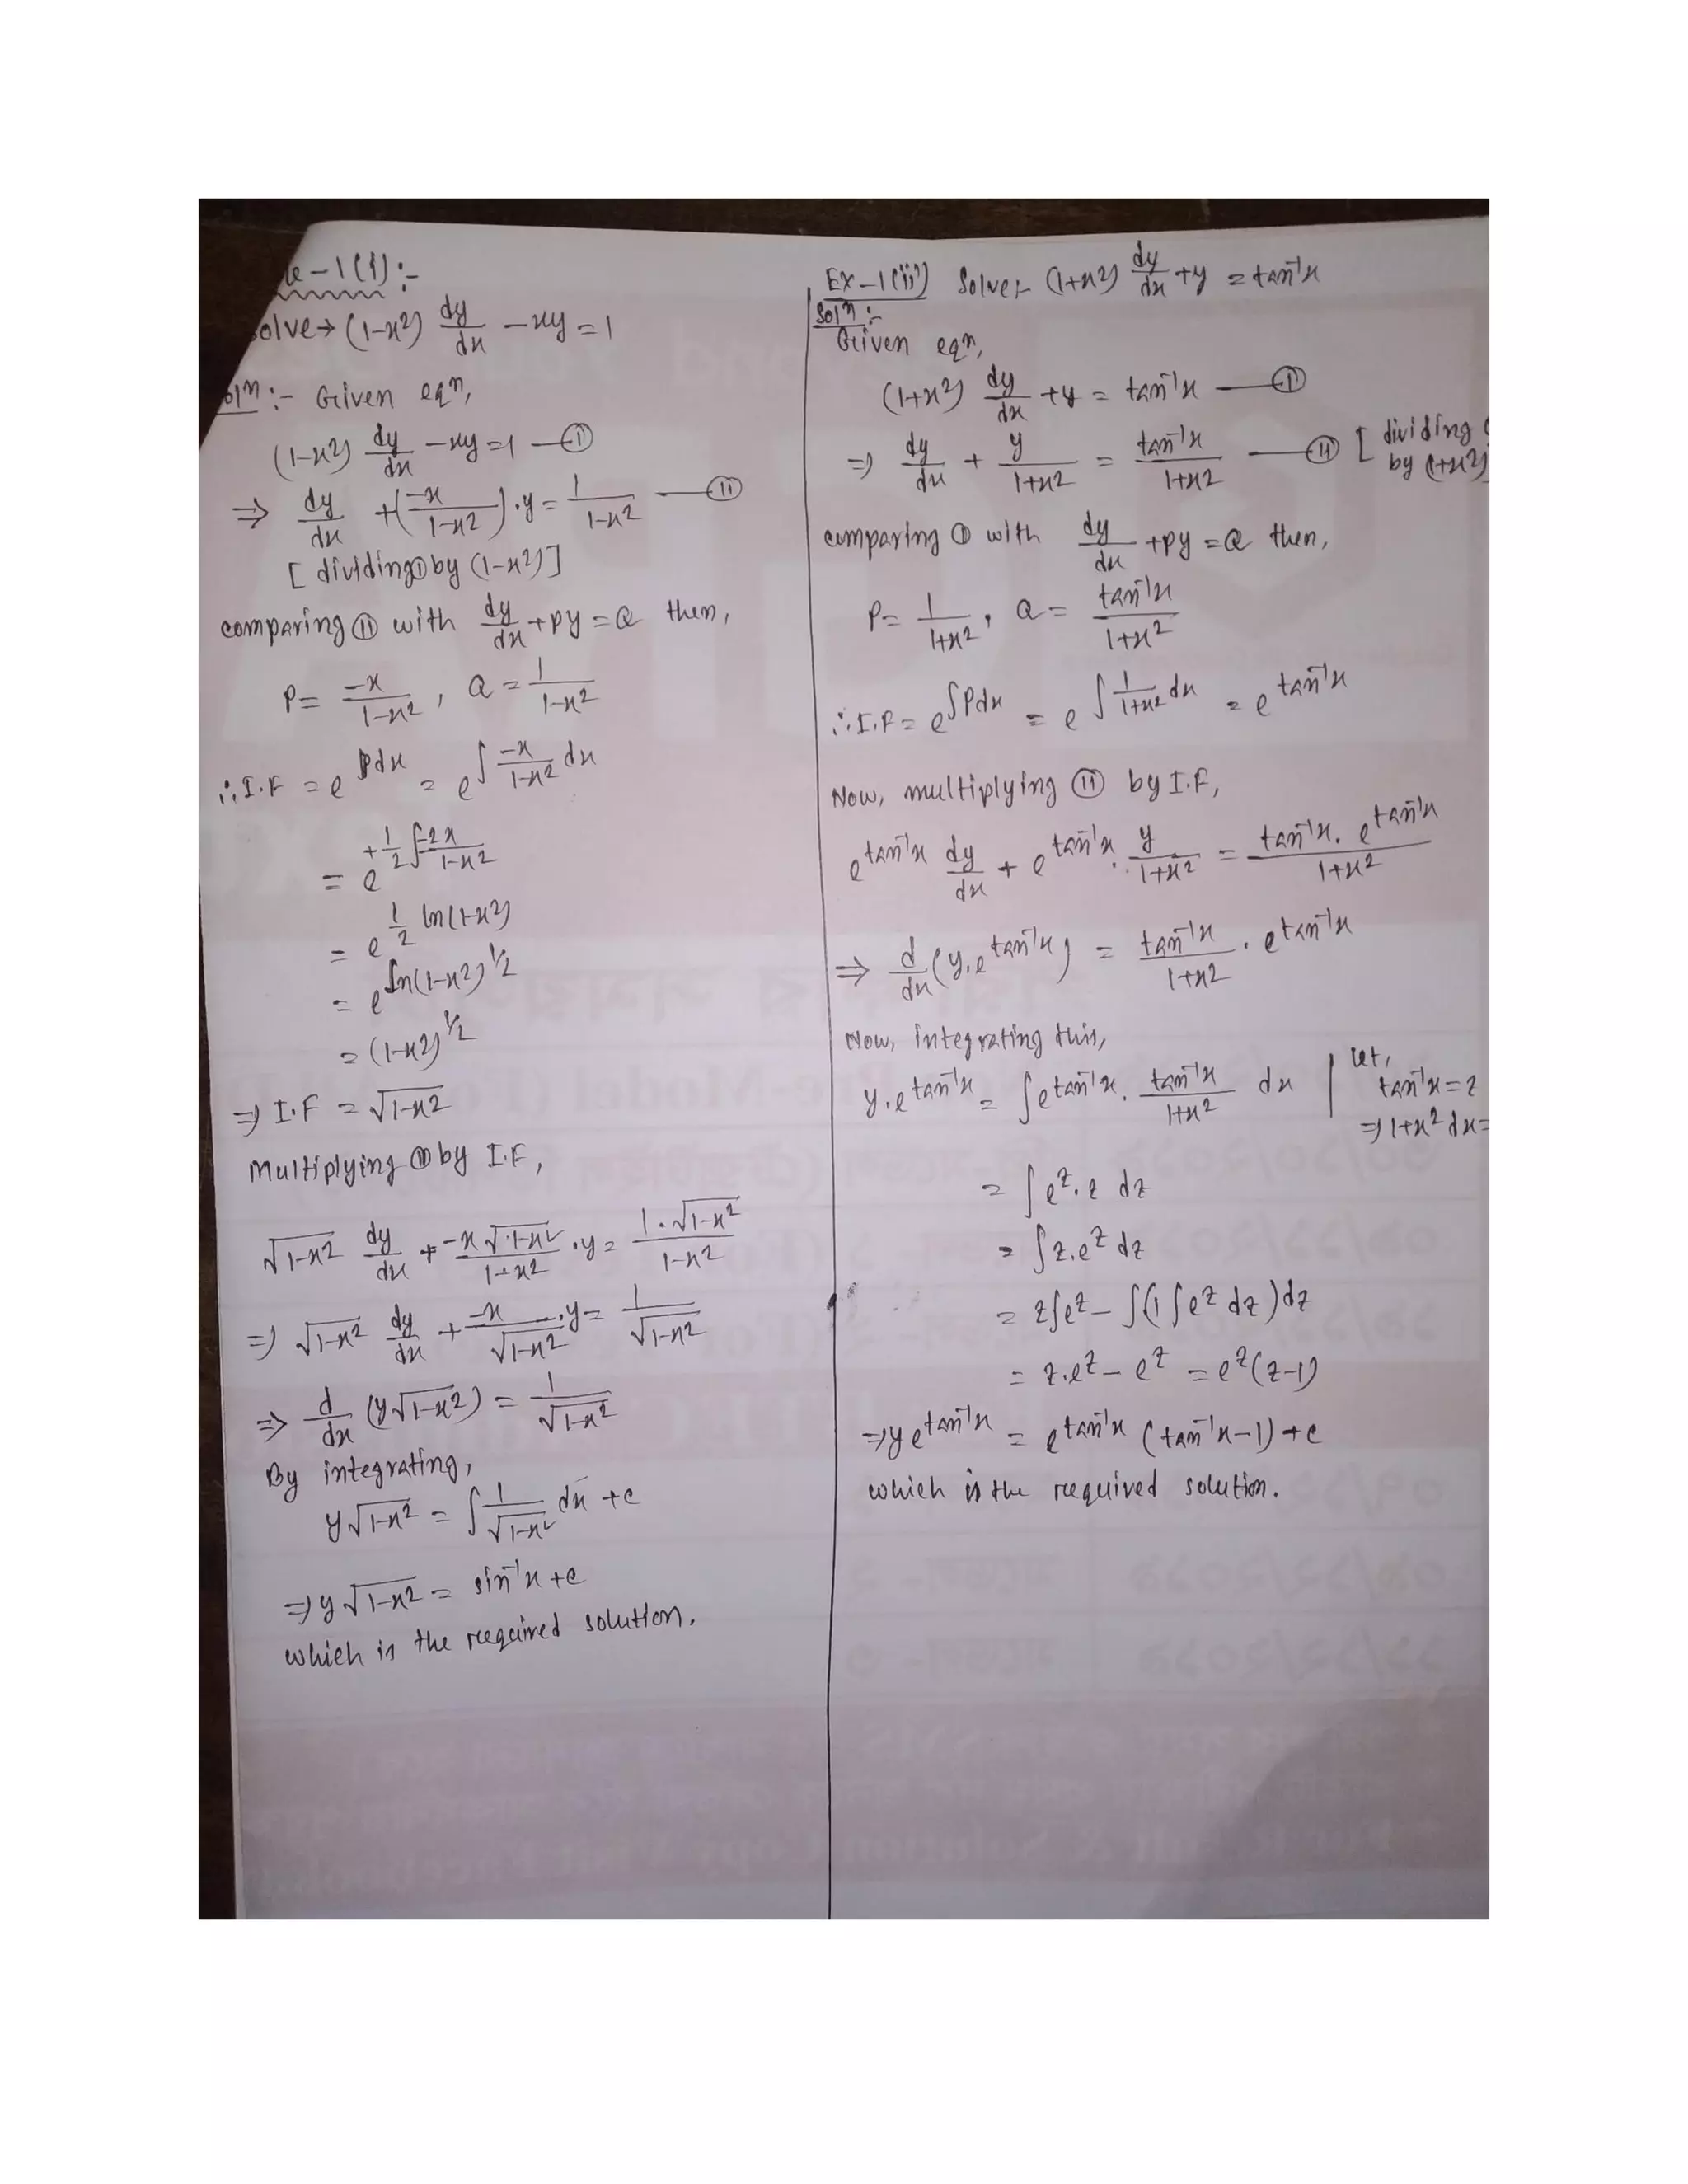 e-1(i):-
olve→ (1-x²) dy/dx - xy = 1
olⁿ:- Given eqⁿ,
(1-x²) dy/dx - xy = 1 —(i)
⇒ dy/dx + (-x/1-x²)·y = 1/1-x² —(ii)
[dividing (i) by (1-x²)]
comparing (ii) with dy/dx + py = Q then,
P = -x/1-x², Q = 1/1-x²
∴ I.F = e^∫Pdx = e^∫ -x/1-x² dx
= e^+1/2 ∫ -2x/1-x²
= e^1/2 ln(1-x²)
= e^ln(1-x²)^1/2
= (1-x²)^1/2
⇒ I.F = √1-x²
Multiplying (ii) by I.F,
√1-x² dy/dx + -x√1-x²/1-x² ·y = 1·√1-x²/1-x²
⇒ √1-x² dy/dx + -x/√1-x² ·y = 1/√1-x²
⇒ d/dx (y√1-x²) = 1/√1-x²
By integrating,
y√1-x² = ∫ 1/√1-x² dx + c
⇒ y√1-x² = sin⁻¹x + c
which is the required solution.
Ex-1(ii) Solve:- (1+x²) dy/dx + y = tan⁻¹x
Solⁿ:-
Given eqⁿ,
(1+x²) dy/dx + y = tan⁻¹x —(i)
⇒ dy/dx + y/1+x² = tan⁻¹x/1+x² —(ii) [dividing
by (1+x²)
comparing (i) with dy/dx + py = Q then,
P = 1/1+x², Q = tan⁻¹x/1+x²
∴ I.F = e^∫Pdx = e^∫ 1/1+x² dx = e^tan⁻¹x
Now, multiplying (ii) by I.F,
e^tan⁻¹x dy/dx + e^tan⁻¹x · y/1+x² = tan⁻¹x. e^tan⁻¹x/1+x²
⇒ d/dx (y.e^tan⁻¹x) = tan⁻¹x/1+x² . e^tan⁻¹x
Now, integrating this,
y.e^tan⁻¹x = ∫e^tan⁻¹x. tan⁻¹x/1+x² dx
let,
tan⁻¹x = z
⇒ 1+x² dx =
= ∫e^z. z dz
= ∫z.e^z dz
= z∫e^z - ∫(1 ∫e^z dz)dz
= z.e^z - e^z = e^z(z-1)
⇒ ye^tan⁻¹x = e^tan⁻¹x (tan⁻¹x-1) + c
which is the required solution.